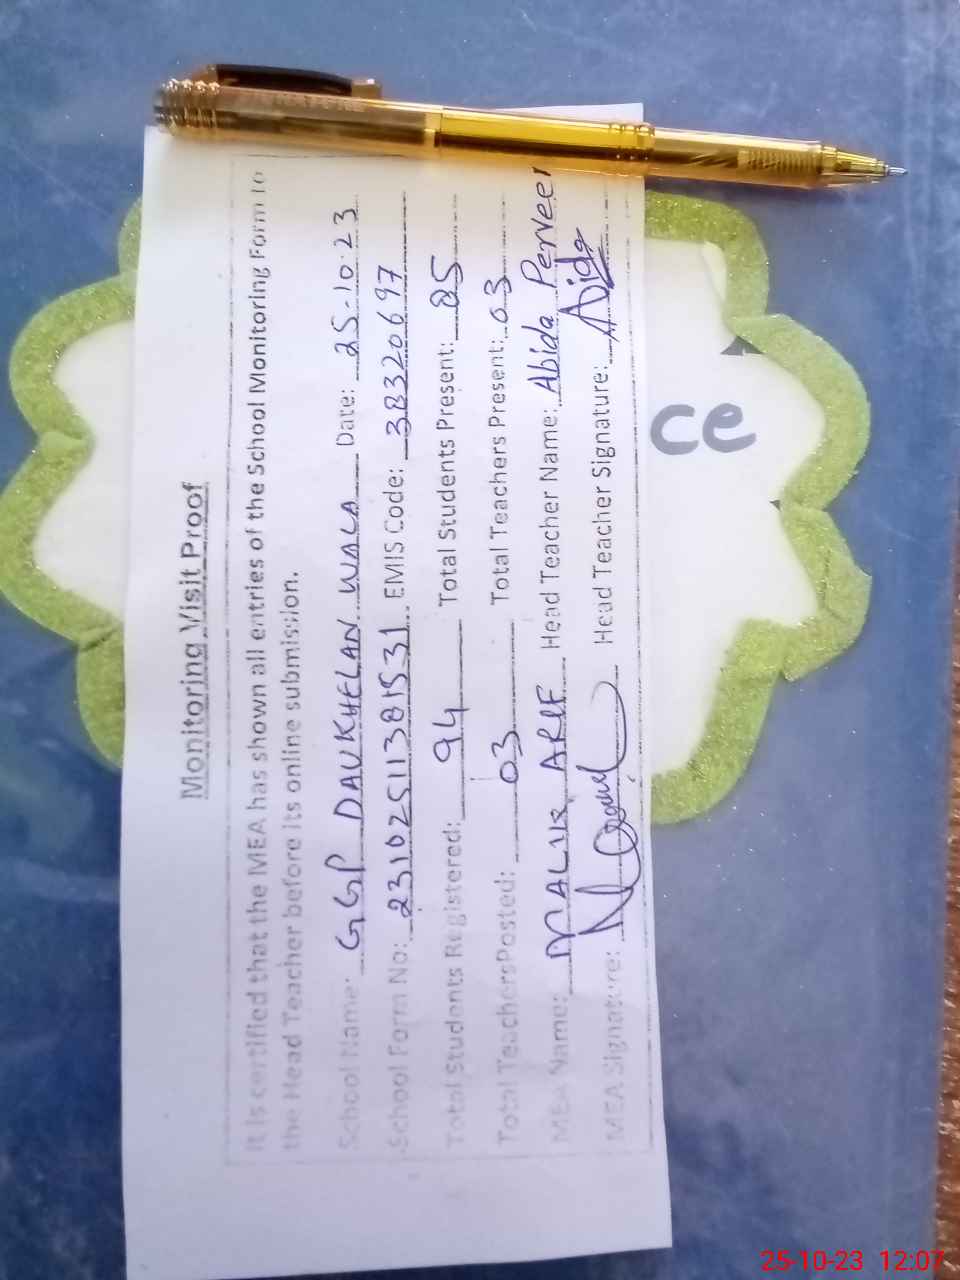 Monitoring Visit Proof
It is certified that the MEA has shown all entries of the School Monitoring Form to
the Head Teacher before its online submission.
School Name: GGP DAUKHELAN WALA Date: 25-10-23
School Form No: 23102511381531 EMIS Code: 38320697
Total Students Registered: 94 Total Students Present: 85
Total Teachers Posted: 03 Total Teachers Present: 03
MEA Name: MALIK ARIF Head Teacher Name: Abida Perveen
MEA Signature: Head Teacher Signature: Abida
ce
25-10-23 12:07